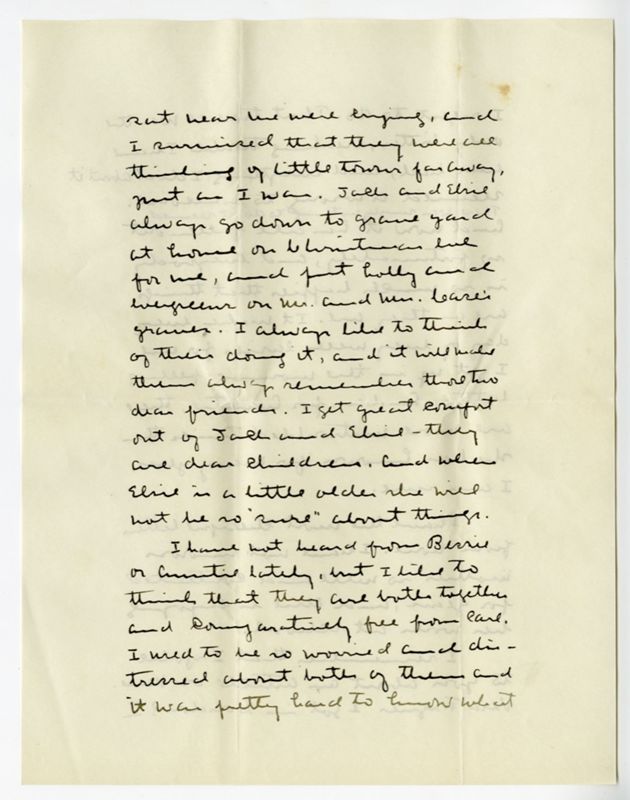 sat near me were crying, and
I surmised that they were all
thinking of little towns far away,
just as I was. Jack and Elsie
always go down to grave yard
at home on Christmas Eve
for me, and put holly and
evergreens on Mr. and Mrs. Case's
graves. I always like to think
of their doing it, and it will make
them always remember those two
dear friends. I get great comfort
out of Jack and Elsie - they
are dear children. And when
Elsie is a little older she will
not be so "sure" about things.
I have not heard from Bessie
or Auntie lately, but I like to
think that they are both together
and comparatively free from care.
I used to be so worried and dis-
tressed about both of them and
it was pretty hard to know what